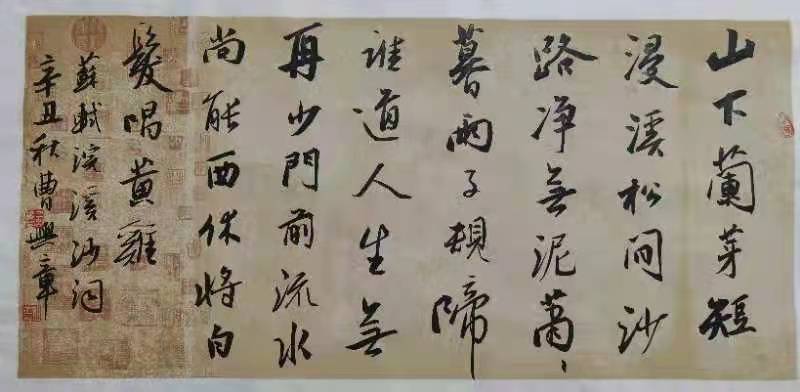 山下蘭芽短
浸溪松间沙
路净無泥萧〻
暮雨子規啼
谁道人生無
再少門前流水
尚能西休将白
髮唱黄雞
蘇軾浣溪沙词
辛丑秋曹興章